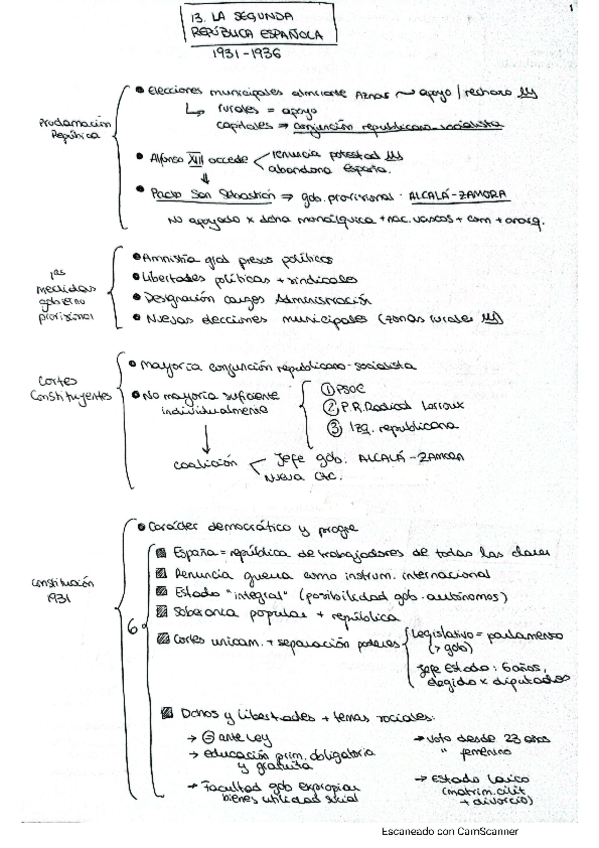 1
13. LA SEGUNDA
REPÚBLICA ESPAÑOLA
1931-1936
Proclamación
República
• Elecciones municipales almirante Aznar ~ apoyo / rechazo
↳ rurales = apoyo
capitales ⇒ conjunción republicano-socialista
• Alfonso XIII accede < renuncia potestad
abandona España.
↓
• Pacto San Sebastián ⇒ gob. provisional · ALCALÁ-ZAMORA
No apoyado x dcha monárquica + nac. vascos + com + anarq.
1as
medidas
gobierno
provisional
• Amnistía gral presos políticos
• Libertades políticas + sindicales
• Designación cargos Administración
• Nuevas elecciones municipales (zonas rurales)
Cortes
Constituyentes
• Mayoría conjunción republicano-socialista
• No mayoría suficiente
individualmente
① PSOE
② P.R. Radical Lerroux
③ Izq. republicana
↓
coalición < Jefe gob. ALCALÁ-ZAMORA
Nueva Ctc.
Constitución
1931
• Carácter democrático y progre
6
España = república de trabajadores de todas las clases
Renuncia guerra como instrum. internacional
Estado "integral" (posibilidad gob. autónomos)
Soberanía popular + república
Cortes unicam. + separación poderes
Legislativo = parlamento
(> gob)
Jefe Estado: 6 años,
elegido x diputados
Dchos y libertades + temas sociales:
→ = ante ley
→ educación prim. obligatoria
y gratuita
→ Facultad gob expropiar
bienes utilidad social
→ voto desde 23 años
" femenino
→ Estado laico
(matrim. civil
+ divorcio)
Escaneado con CamScanner